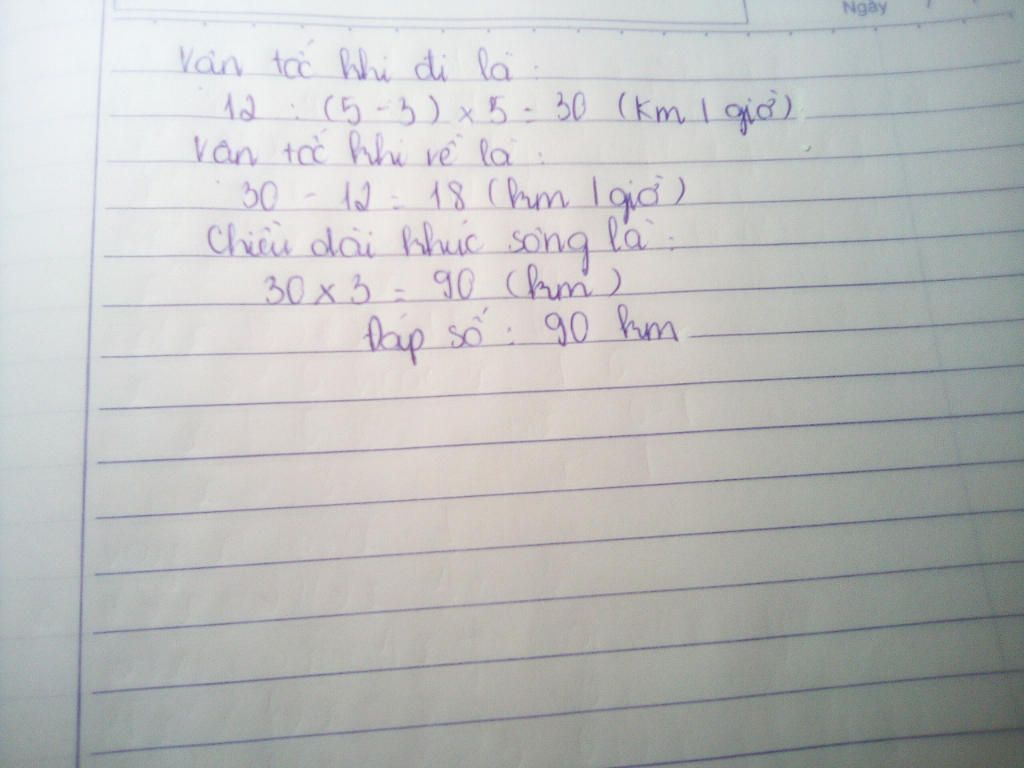 Ngày /
Vận tốc khi đi là :
12 : (5 - 3) × 5 = 30 (km / giờ)
Vận tốc khi về là :
30 - 12 = 18 (km / giờ)
Chiều dài khúc sông là :
30 × 3 = 90 (km)
Đáp số : 90 km